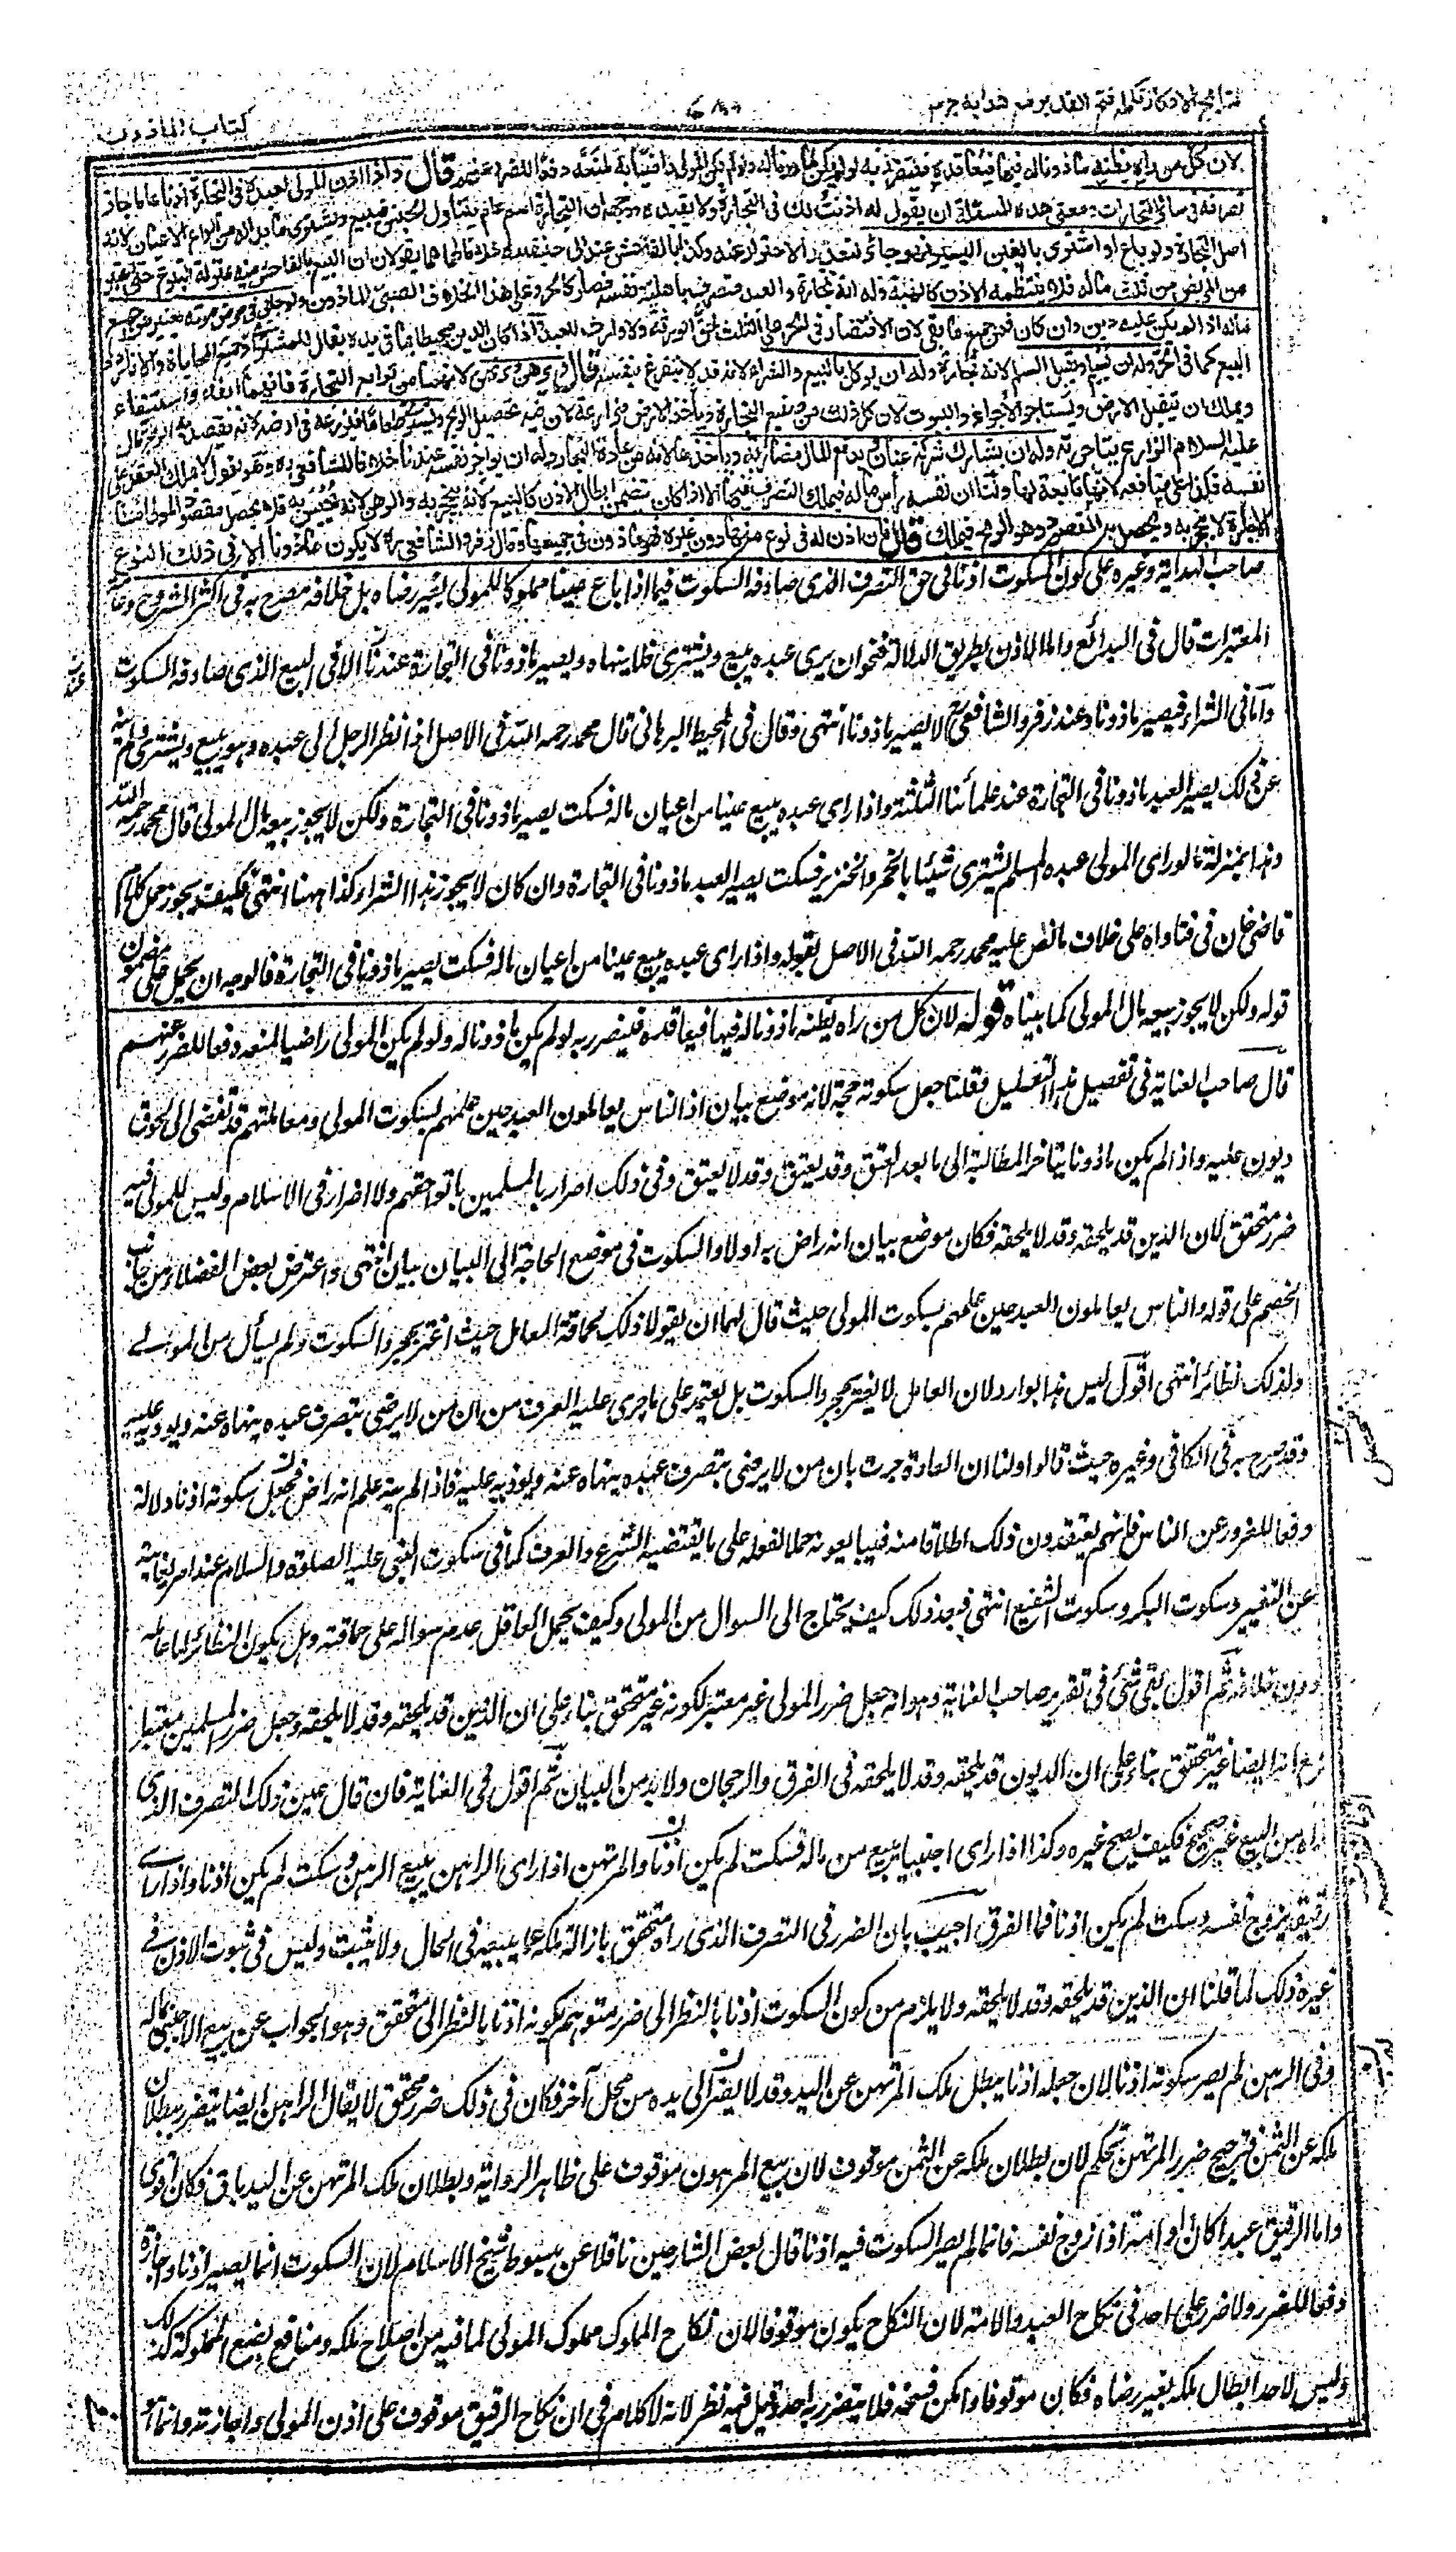 نتائج الافكار تكملہ فتح القدیر مع ھدایہ جہم
کتاب الماذون
لان كل من راه يظنه ماذونا له فيها فيعاقده فيتضرر به لو لم يكن ماذونا له ولو لم يكن المولى راضيا به لمنعه دفعا للضرر عنهم قال واذا اذن المولى لعبده فى التجارة اذنا عاما جاز
تصرفه فى سائر التجارات ومعنى هذه المسئلة ان يقول له اذنت لك فى التجارة ولا يقيده ووجهه ان التجارة اسم عام يتناول الجنس فيبيع ويشترى ما بدا له من انواع الاعيان لانه
اصل التجارة ولو باع او اشترى بالغبن اليسير فهو جائز لتعذر الاحتراز عنه وكذا بالفاحش عند ابى حنيفة خلافا لهما هما يقولان ان البيع بالفاحش منه بمنزلة التبرع حتى اعتبر
من المريض من ثلث ماله فلا ينتظمه الاذن كالهبة وله انه تجارة والعبد متصرف باهلية نفسه فصار كالحر وعلى هذا الخلاف الصبى الماذون ولو حابى فى مرض موته يعتبر من جميع
ماله اذا لم يكن عليه دين وان كان فمن جميع ما بقى لان الاقتصار فى الحر على الثلث لحق الورثة ولا وارث للعبد واذا كان الدين محيطا بما فى يده يقال للمشترى اد جميع المحاباة والا فاردد
البيع كما فى الحر وله ان يسلم ويقبل السلم لانه تجارة وله ان يوكل بالبيع والشراء لانه قد لا يتفرغ بنفسه قال ويرهن ويرتهن لانهما من توابع التجارة فانهما ايفاء واستيفاء
ويملك ان يتقبل الارض ويستاجر الاجراء والبيوت لان كل ذلك من صنيع التجارة ويأخذ الارض مزارعة لان فيه تحصيل الربح ويشترى طعاما فيزرعه فى ارضه لانه يقصد به الربح قال
عليه السلام الزارع يتاجر ربه وله ان يشارك شركة عنان ويدفع المال مضاربة ويأخذها لانه من عادة التجار وله ان يواجر نفسه عندنا خلافا للشافعى وهو يقول لا يملك العقد على
نفسه فكذا على منافعه لانها تابعة لها ولنا ان نفسه رأس ماله فيملك التصرف فيها الا اذا كان يتضمن ابطال الاذن كالبيع لانه ينحجر به والرهن لانه يحبس به فلا يحصل مقصود المولى اما
الاجارة لا ينحجر به ويحصل به المقصود وهو الربح فيملك قال فان اذن له فى نوع منها دون غيره فهو ماذون فى جميعها وقال زفر والشافعى ره لا يكون ماذونا الا فى ذلك النوع
صاحب الهداية وغيره على كون السكوت اذنا فى حق التصرف الذى صادفه السكوت فيما اذا باع عينا مملوكا للمولى بغير رضاه بل خلافه مصرح به فى اكثر الشروح وعامة
المعتبرات قال فى البدائع واما الاذن بطريق الدلالة فنحو ان يرى عبده يبيع ويشترى فلا ينهاه ويصير ماذونا فى التجارة عندنا الا فى البيع الذى صادفه السكوت
واما فى الشراء فيصير ماذونا وعند زفر والشافعى لا يصير ماذونا انتهى وقال فى المحيط البرهانى قال محمد رحمه الله فى الاصل اذا نظر الرجل الى عبده وهو يبيع ويشترى ولم ينهه
عن ذلك يصير العبد ماذونا فى التجارة عند علمائنا الثلثة واذا راى عبده يبيع عينا من اعيان ماله فسكت يصير ماذونا فى التجارة ولكن لا يجوز بيعه مال المولى قال محمد رحمه الله
وهذا بمنزلة ما لو راى المولى عبده المسلم يشترى شيئا بالخمر والخنزير فسكت يصير العبد ماذونا فى التجارة وان كان لا يجوز هذا الشراء كذا ههنا انتهى فكيف يجوز حمل كلام
قاضى خان فى فتاواه على خلاف ما نص عليه محمد رحمه الله فى الاصل بقوله واذا راى عبده يبيع عينا من اعيان ماله فسكت يصير ماذونا فى التجارة فالوجه ان يحمل على مضمون
قوله ولكن لا يجوز بيعه مال المولى كما بيناه قوله لان كل من راه يظنه ماذونا له فيها فيعاقده فيتضرر به لو لم يكن ماذونا له ولو لم يكن المولى راضيا لمنعه دفعا للضرر عنهم
قال صاحب العناية فى تفصيل هذا التعليل وقلنا جعل سكوته حجة لانه موضع بيان اذ الناس يعاملون العبد حين علمهم بسكوت المولى ومعاملتهم قد تفضى الى لحوق
ديون عليه واذا لم يكن ماذونا يتاخر المطالبة الى ما بعد العتق وقد يعتق وقد لا يعتق وفى ذلك اضرار بالمسلمين باتواء حقهم ولا اضرار فى الاسلام وليس للمولى فيه
ضرر متحقق لان الدين قد يلحقه وقد لا يلحقه فكان موضع بيان انه راض به اولا والسكوت فى موضع الحاجة الى البيان بيان انتهى واعترض بعض الفضلاء من جانب
الخصم على قوله والناس يعاملون العبد حين علمهم بسكوت المولى حيث قال لهما ان يقولا ذلك لحماقة العامل حيث اغتر بمجرد السكوت ولم يسأل من المولى
ولذلك نظائر انتهى اقول ليس هذا بوارد لان العامل لا يغتر بمجرد السكوت بل يعتمد على ما جرى عليه العرف من ان من لا يرضى بتصرف عبده ينهاه عنه ويؤدبه عليه
وقد صرح به فى الكافى وغيره حيث قالوا ولنا ان العادة جرت بان من لا يرضى بتصرف عبده ينهاه عنه ويؤدبه عليه فاذا لم ينهه علم انه راض فجعل سكوته اذنا دلالة
دفعا للضرر عن الناس فانهم يعتقدون ذلك اطلاقا منه فيبايعونه حملا لفعله على ما يقتضيه الشرع والعرف كما فى سكوت النبى عليه الصلوة والسلام عند امر يعاينه
عن التغيير وسكوت البكر وسكوت الشفيع انتهى فبعد ذلك كيف يحتاج الى السوال من المولى وكيف يحمل العاقل عدم سواله على حماقته وهل يكون النظائر لما عامله
دون خلافه ثم اقول بقى شئ فى تقرير صاحب العناية وهو انه جعل ضرر المولى غير معتبر لكونه غير متحقق بناء على ان الدين قد يلحقه وقد لا يلحقه وجعل ضرر المسلمين معتبرا
مع انه ايضا غير متحقق بناء على ان الديون قد تلحقه وقد لا يلحقه فى الفرق والرجحان ولا بد من البيان ثم اقول فى العناية فان قال عين ذلك التصرف الذى
راه من البيع غير صحيح فكيف يصح غيره وكذا اذا راى اجنبيا يبيع من ماله فسكت لم يكن اذنا والمرتهن اذا راى الراهن يبيع الرهن وسكت لم يكن اذنا واذا راى
رقيقه يزوج نفسه وسكت لم يكن اذنا فما الفرق اجيب بان الضرر فى التصرف الذى راه متحقق بازالة ملكه عما يبيعه فى الحال ولا يثبت وليس فى ثبوت الاذن فى
غيره ذلك لما قلنا ان الدين قد يلحقه وقد لا يلحقه ولا يلزم من كون السكوت اذنا بالنظر الى ضرر متوهم كونه اذنا بالنظر الى متحقق وهو الجواب عن بيع الاجنبى ماله
وفى الرهن لم يصر سكوته اذنا لان جعله اذنا يبطل ملك المرتهن عن اليد وقد لا يصل الى يده من محل آخر فكان فى ذلك ضرر محقق لا يقال الراهن ايضا يتضرر ببطلان
ملكه عن الثمن فترجيح ضرر المرتهن تحكم لان بطلان ملكه عن الثمن موقوف لان بيع المرهون موقوف على ظاهر الرواية وبطلان ملك المرتهن عن اليد باق فكان اقوى
واما الرقيق عبدا كان او امة اذا زوج نفسه فانما لم يصر السكوت فيه اذنا قال بعض الشارحين ناقلا عن مبسوط شيخ الاسلام لان السكوت انما يصير اذنا واجازة
دفعا للضرر ولا ضرر على احد فى نكاح العبد والامة لان النكاح يكون موقوفا لان نكاح المملوك مملوك المولى لما فيه من اصلاح ملكه ومنافع بضع المملوكة كذلك
وليس لاحد ابطال ملكه بغير رضاه فكان موقوفا وامكن فسخه فلا يتضرر به احد وقيل فيه نظر لانه لا كلام فى ان نكاح الرقيق موقوف على اذن المولى واجازته وانما